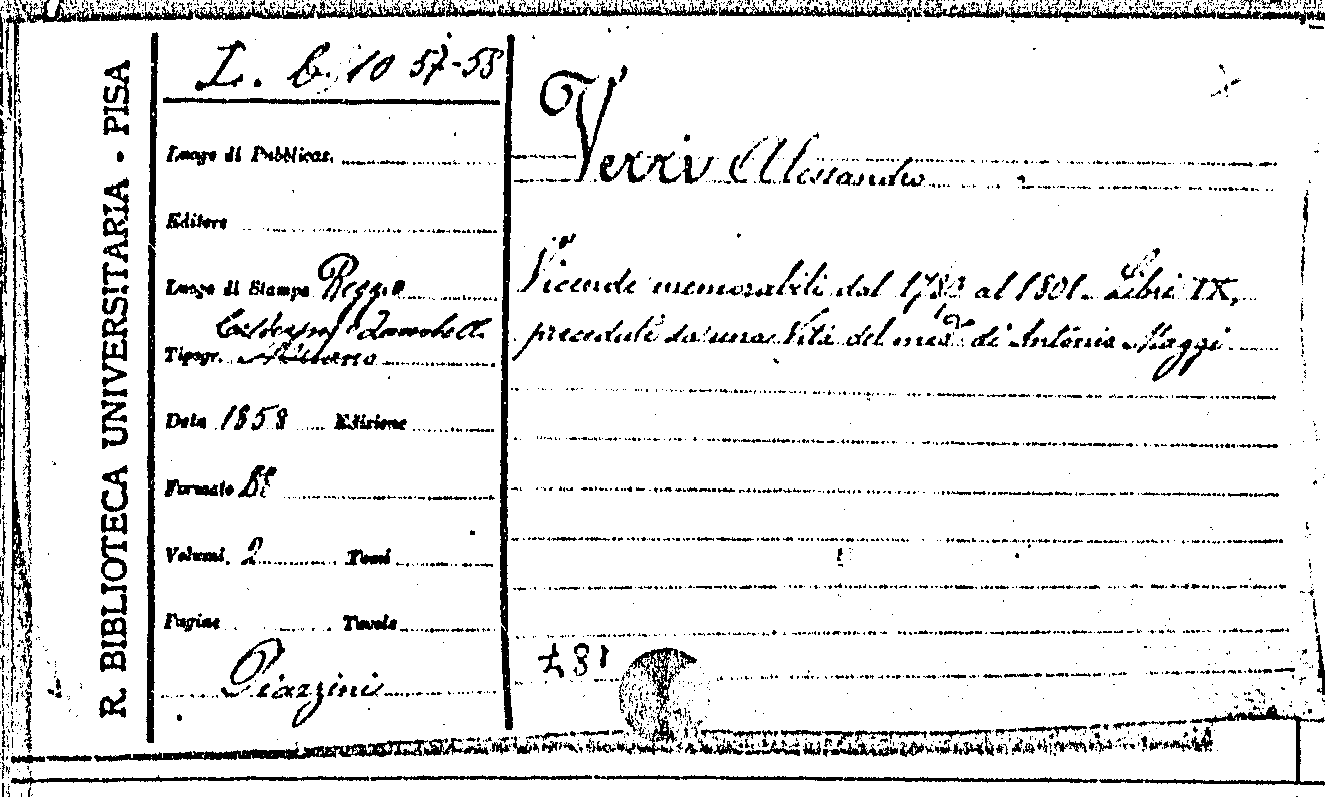 R. BIBLIOTECA UNIVERSITARIA - PISA
L. b. 10 57-58
Luogo di Pubblicaz.
Editore
Luogo di Stampa Reggio
Tipogr.
Data 1858 Edizione
Formato 8º
Volumi 2 Tomi
Pagine Tavole
Piazzini
Verri Alessandro
Vicende memorabili dal 1789 al 1801. Libri IX,
precedute da una Vita del med. di Antonio Maggi